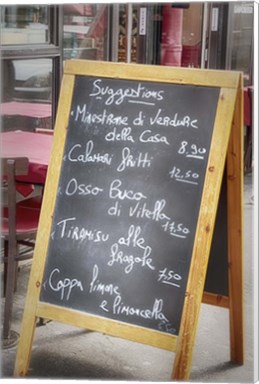 Suggestions
Minestrone di verdure
della Casa 8.90
Calamari fritti
12.50
Osso Buco
di Vitello
17.50
Tiramisu alle
fragole 7.50
Coppa limone
e limoncello